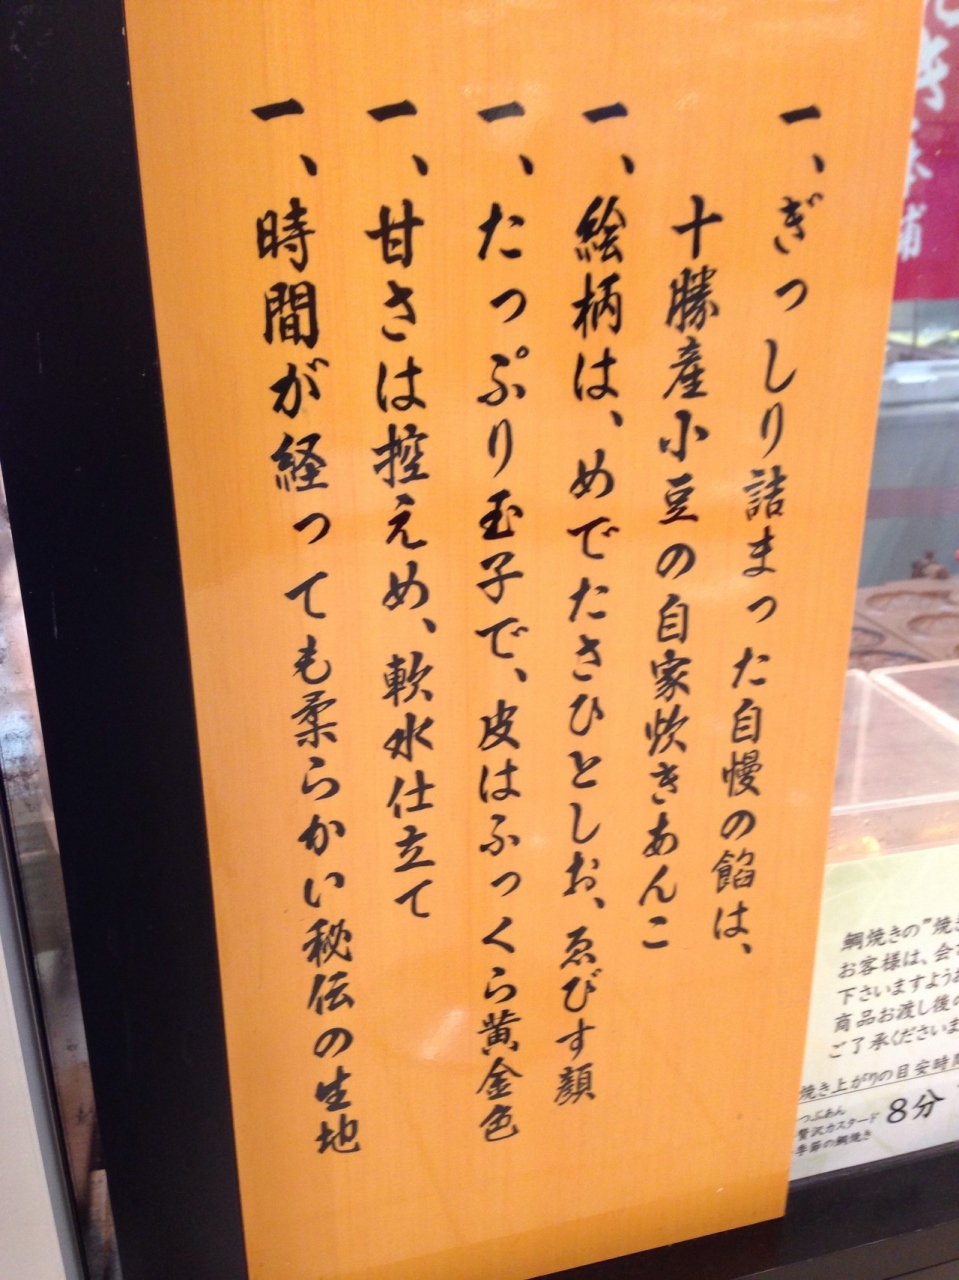 一、ぎっしり詰まった自慢の餡は、
十勝産小豆の自家炊きあんこ
一、絵柄は、めでたさひとしお、ゑびす顔
一、たっぷり玉子で、皮はふっくら黄金色
一、甘さは控えめ、軟水仕立て
一、時間が経っても柔らかい秘伝の生地
鯛焼きの"焼き
お客様は、会
下さいますようお
商品お渡し後の
ご了承くださいま
焼き上がりの目安時間
つぶあん
贅沢カスタード
季節の鯛焼き
8分